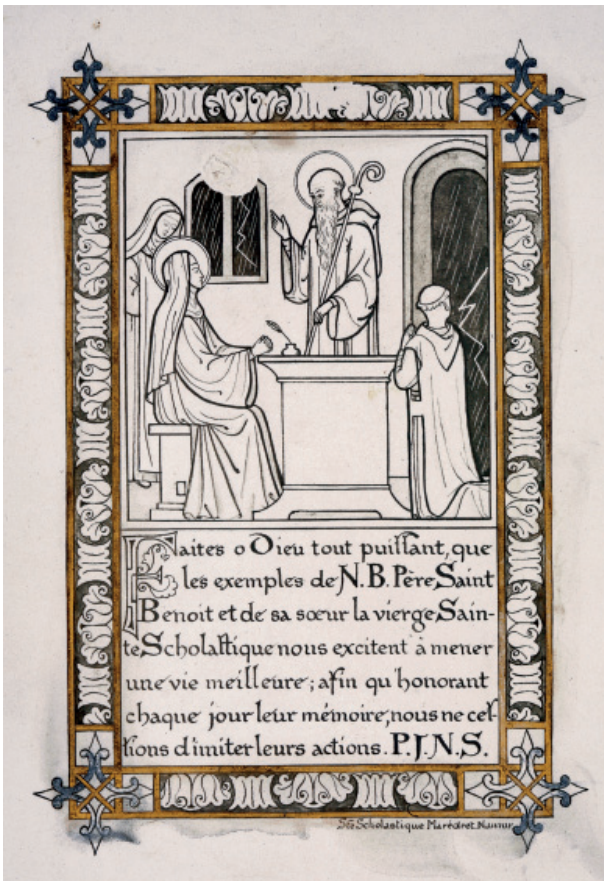 Faites o Dieu tout puiſſant, que
les exemples de N. B. Père Saint
Benoit et de sa sœur la vierge Sain-
te Scholaſtique nous excitent à mener
une vie meilleure; afin qu'honorant
chaque jour leur mémoire, nous ne ceſ-
ſions d'imiter leurs actions. P. J. N. S.
Ste Scholastique Maredret Namur